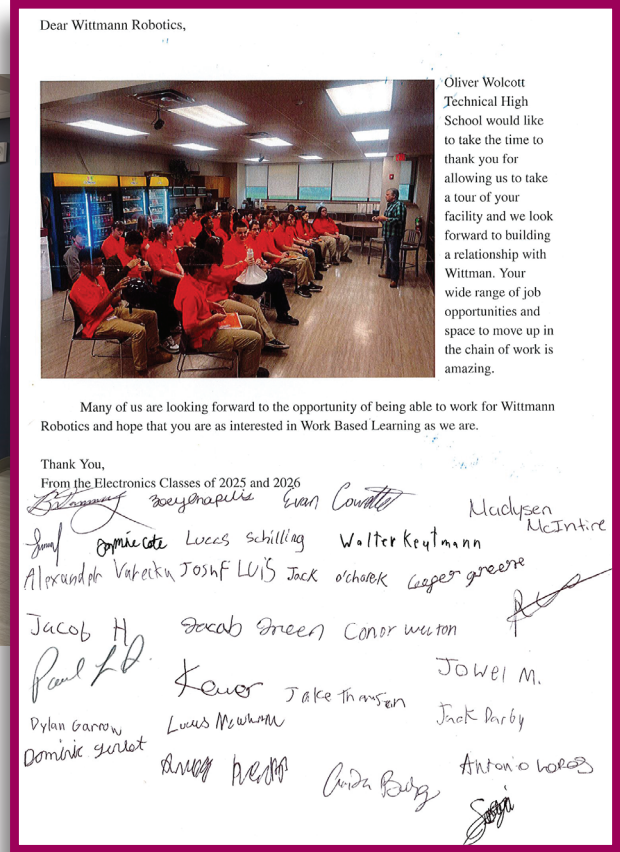 Dear Wittmann Robotics,
Oliver Wolcott
Technical High
School would like
to take the time to
thank you for
allowing us to take
a tour of your
facility and we look
forward to building
a relationship with
Wittman. Your
wide range of job
opportunities and
space to move up in
the chain of work is
amazing.
Many of us are looking forward to the opportunity of being able to work for Wittmann
Robotics and hope that you are as interested in Work Based Learning as we are.
Thank You,
From the Electronics Classes of 2025 and 2026
Evan
Madysen
McIntire
Sophie Cote Lucas Schilling Walter Keutmann
Josuf Luis Jack o'charek Cooper greene
Jacob H Jacob Green Conor
Paul
Jowel M.
Jake
Dylan Garrow Lucas Jack Darby
Dominic
Antonio